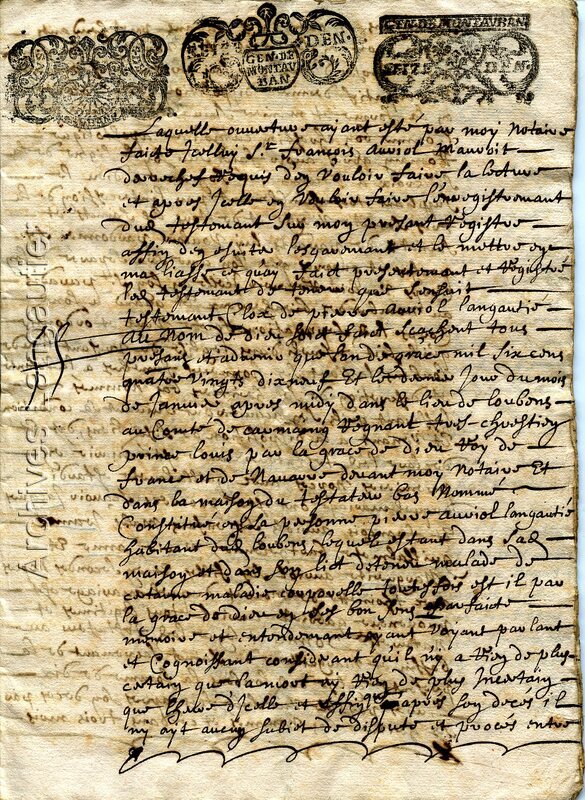 SEIZE DEN
GEN. DE
MONTAU
BAN
GEN. DE MONTAUBAN
SEIZE DEN
Laquelle ouverture ayant esté par moy Notaire
faicte Icelluy Sr. françois auriol m'auroit
derechef Requis d'en Vouloir faire la lecture
et apres Icelle en Vouloir faire l'enregistremant
dud testemant sur mon presant Registre
affin d'en esviter et le mettre en
ma liasse ce quay faict presentement et Registré
led testemant de teneur que sensuit
testemant Clox de pierre auriol langautié
Au Nom de dieu soict faict scachent tous
presans et advenir que l'an de grace mil six cens
quatre Vingts dix neuf Et le dernier Jour du mois
de Janvier apres midy dans le lieu de loubens
au Comté de carmaing Regnant tres-chrestien
prince louis par la grace de dieu Roy de
france et de Navarre devant moy Notaire Et
dans la maison du testateur bas Nommé
Constitué en sa personne pierre auriol langautié
habitant dud loubens lequel estant dans sad
maison et dans son lict detenu malade de
certaine maladie corporelle toutesfois est il par
la grace de dieu en ses bon sens parfaicte
memoire et entendement oyant Voyant parlant
et Cognoissant considerant quil ny a Rien de plus
certain que la mort ny Rien de plus Incertain
que l'heure d'Icelle et affin qu'apres son decés il
ny ayt aucun subiet de dispute et procés entre
Archives Fondauffier